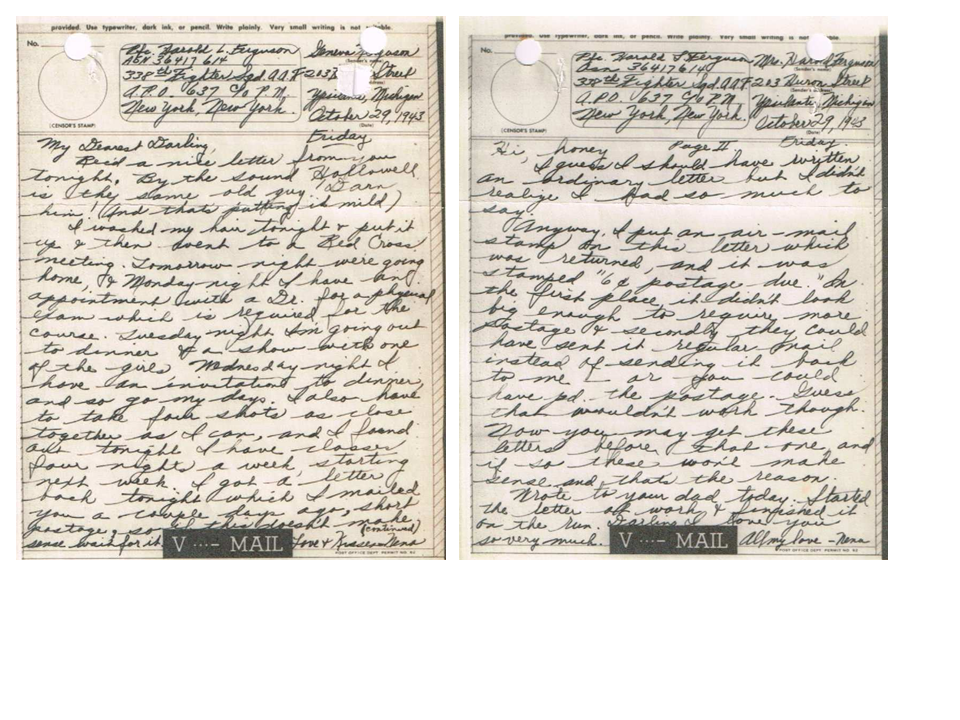 provided. Use typewriter, dark ink, or pencil. Write plainly. Very small writing is not suitable.
No.
(CENSOR'S STAMP)
Pfc. Harold L. Ferguson
ASN 36417614
338th Fighter Sqd AAF
A.P.O. 637 c/o P.M.
New York, New York.
Geneva Ferguson
203 Street
Ypsilanti, Michigan
October 29, 1943
(Date)
Friday
My Dearest Darling,
Rec'd a nice letter from you
tonight. By the sound Hollowell
is the same old guy. Darn
him! (And thats putting it mild)
I washed my hair tonight & put it
up & then went to a Red Cross
meeting. Tomorrow night we're going
home, & Monday night I have an
appointment with a Dr. for a physical
exam which is required for the
course. Tuesday night I'm going out
to dinner & a show with one
of the girls. Wednesday night I
have an invitation to dinner,
and so go my days. I also have
to take four shots as close
together as I can, and I found
out tonight I have classes
four night a week, starting
next week. I got a letter
back tonight which I mailed
you a couple days ago, short
postage, so if this doesn't make
(continued)
sense wait for it
Love & Kisses - Nena
V ...- MAIL
POST OFFICE DEPT. PERMIT NO. 92
provided. Use typewriter, dark ink, or pencil. Write plainly. Very small writing is not suitable.
No.
(CENSOR'S STAMP)
Pfc. Harold L Ferguson
Asn. 36417614
338th Fighter Sqd AAF
A.P.O. 637 c/o P.M.
New York, New York.
Mrs. Harold Ferguson
(Sender's name)
203 Huron Street
(Sender's address)
Ypsilanti, Michigan
October 29, 1943
(Date)
Friday
Hi, honey Page II
I guess I should have written
an ordinary letter but I didn't
realize I had so much to
say.
Anyway, I put an air-mail
stamp on this letter which
was returned, and it was
stamped "6¢ postage due." In
the first place, it didn't look
big enough to require more
postage & secondly they could
have sent it regular mail
instead of sending it back
to me - or you could
have pd. the postage. Guess
that wouldn't work though.
Now you may get these
letters before that one, and
if so these won't make
sense and thats the reason.
Wrote to your dad today. Started
the letter at work & finished it
on the run. Darling I love you
so very much. All my love - Nena
V ...- MAIL
POST OFFICE DEPT. PERMIT NO. 92